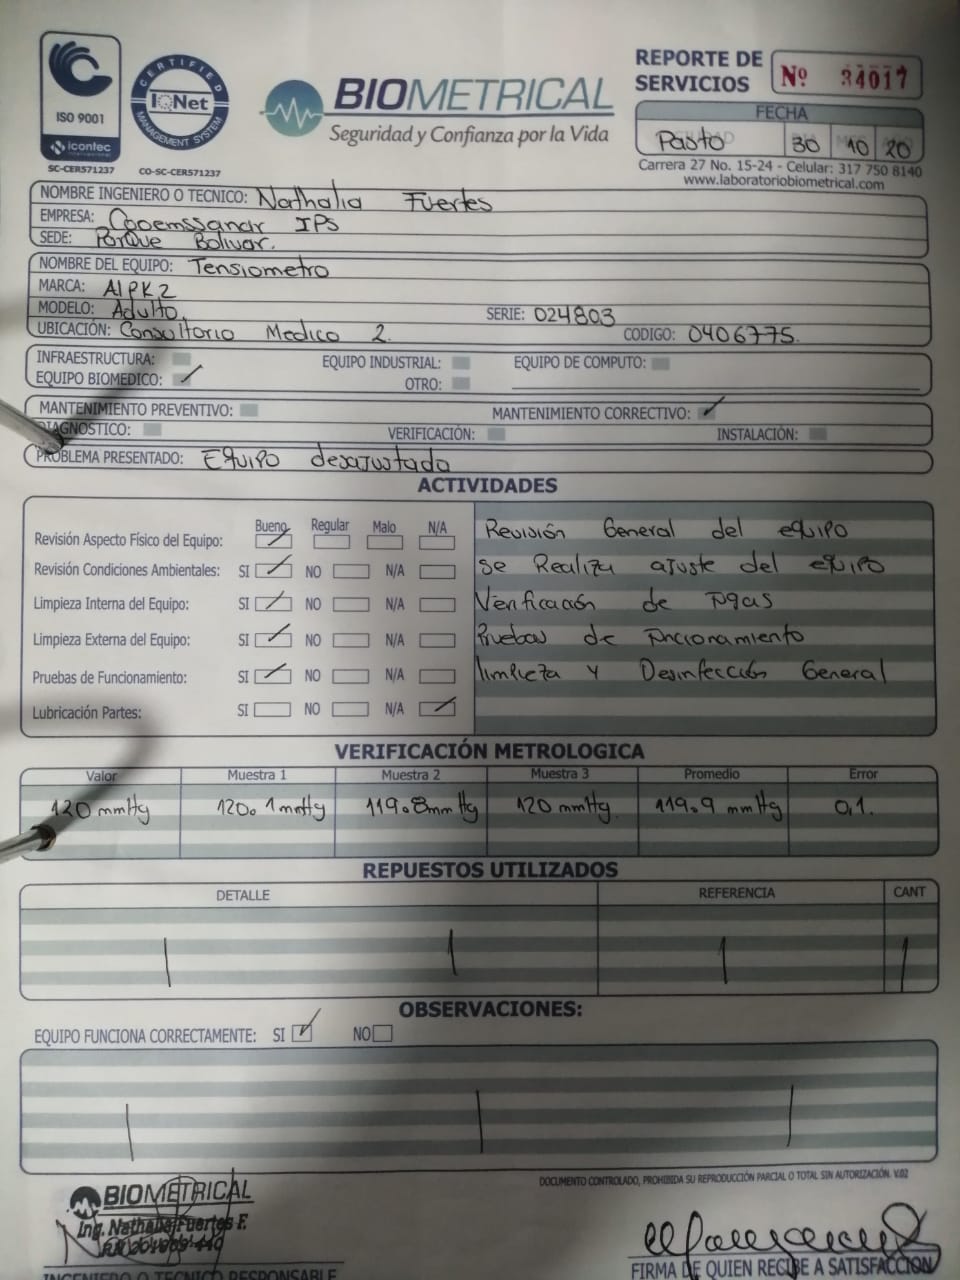 ISO 9001
icontec
internacional
SC-CER571237
CERTIFIED
IQNet
MANAGEMENT SYSTEM
CO-SC-CER571237
BIOMETRICAL
Seguridad y Confianza por la Vida
REPORTE DE SERVICIOS
Nº 34017
FECHA
Pasto 30 10 20
Carrera 27 No. 15-24 - Celular: 317 750 8140
www.laboratoriobiometrical.com
NOMBRE INGENIERO O TECNICO: Nathalia Fuertes
EMPRESA: Cooemssanar IPS
SEDE: Parque Bolivar.
NOMBRE DEL EQUIPO: Tensiometro
MARCA: AlPK2
MODELO: Adulto. SERIE: 024803
UBICACIÓN: Consultorio Medico 2. CODIGO: 0406775.
INFRAESTRUCTURA: EQUIPO INDUSTRIAL: EQUIPO DE COMPUTO:
EQUIPO BIOMEDICO: OTRO:
MANTENIMIENTO PREVENTIVO: MANTENIMIENTO CORRECTIVO:
DIAGNOSTICO: VERIFICACIÓN: INSTALACIÓN:
PROBLEMA PRESENTADO: Equipo desajustado
ACTIVIDADES
Bueno Regular Malo N/A
Revisión Aspecto Físico del Equipo:
Revisión Condiciones Ambientales: SI NO N/A
Limpieza Interna del Equipo: SI NO N/A
Limpieza Externa del Equipo: SI NO N/A
Pruebas de Funcionamiento: SI NO N/A
Lubricación Partes: SI NO N/A
Revisión General del equipo
se Realiza ajuste del equipo
Verificación de Fugas
Pruebas de Funcionamiento
limpieza y Desinfección General
VERIFICACIÓN METROLOGICA
Valor Muestra 1 Muestra 2 Muestra 3 Promedio Error
120 mmHg 120.1mmHg 119.8mmHg 120 mmHg. 119.9 mmHg 0,1.
REPUESTOS UTILIZADOS
DETALLE REFERENCIA CANT
OBSERVACIONES:
EQUIPO FUNCIONA CORRECTAMENTE: SI NO
DOCUMENTO CONTROLADO, PROHIBIDA SU REPRODUCCIÓN PARCIAL O TOTAL SIN AUTORIZACIÓN. V.02
BIOMETRICAL
Ing. Nathalia Fuertes F.
INGENIERO O TECNICO RESPONSABLE
FIRMA DE QUIEN RECIBE A SATISFACCION